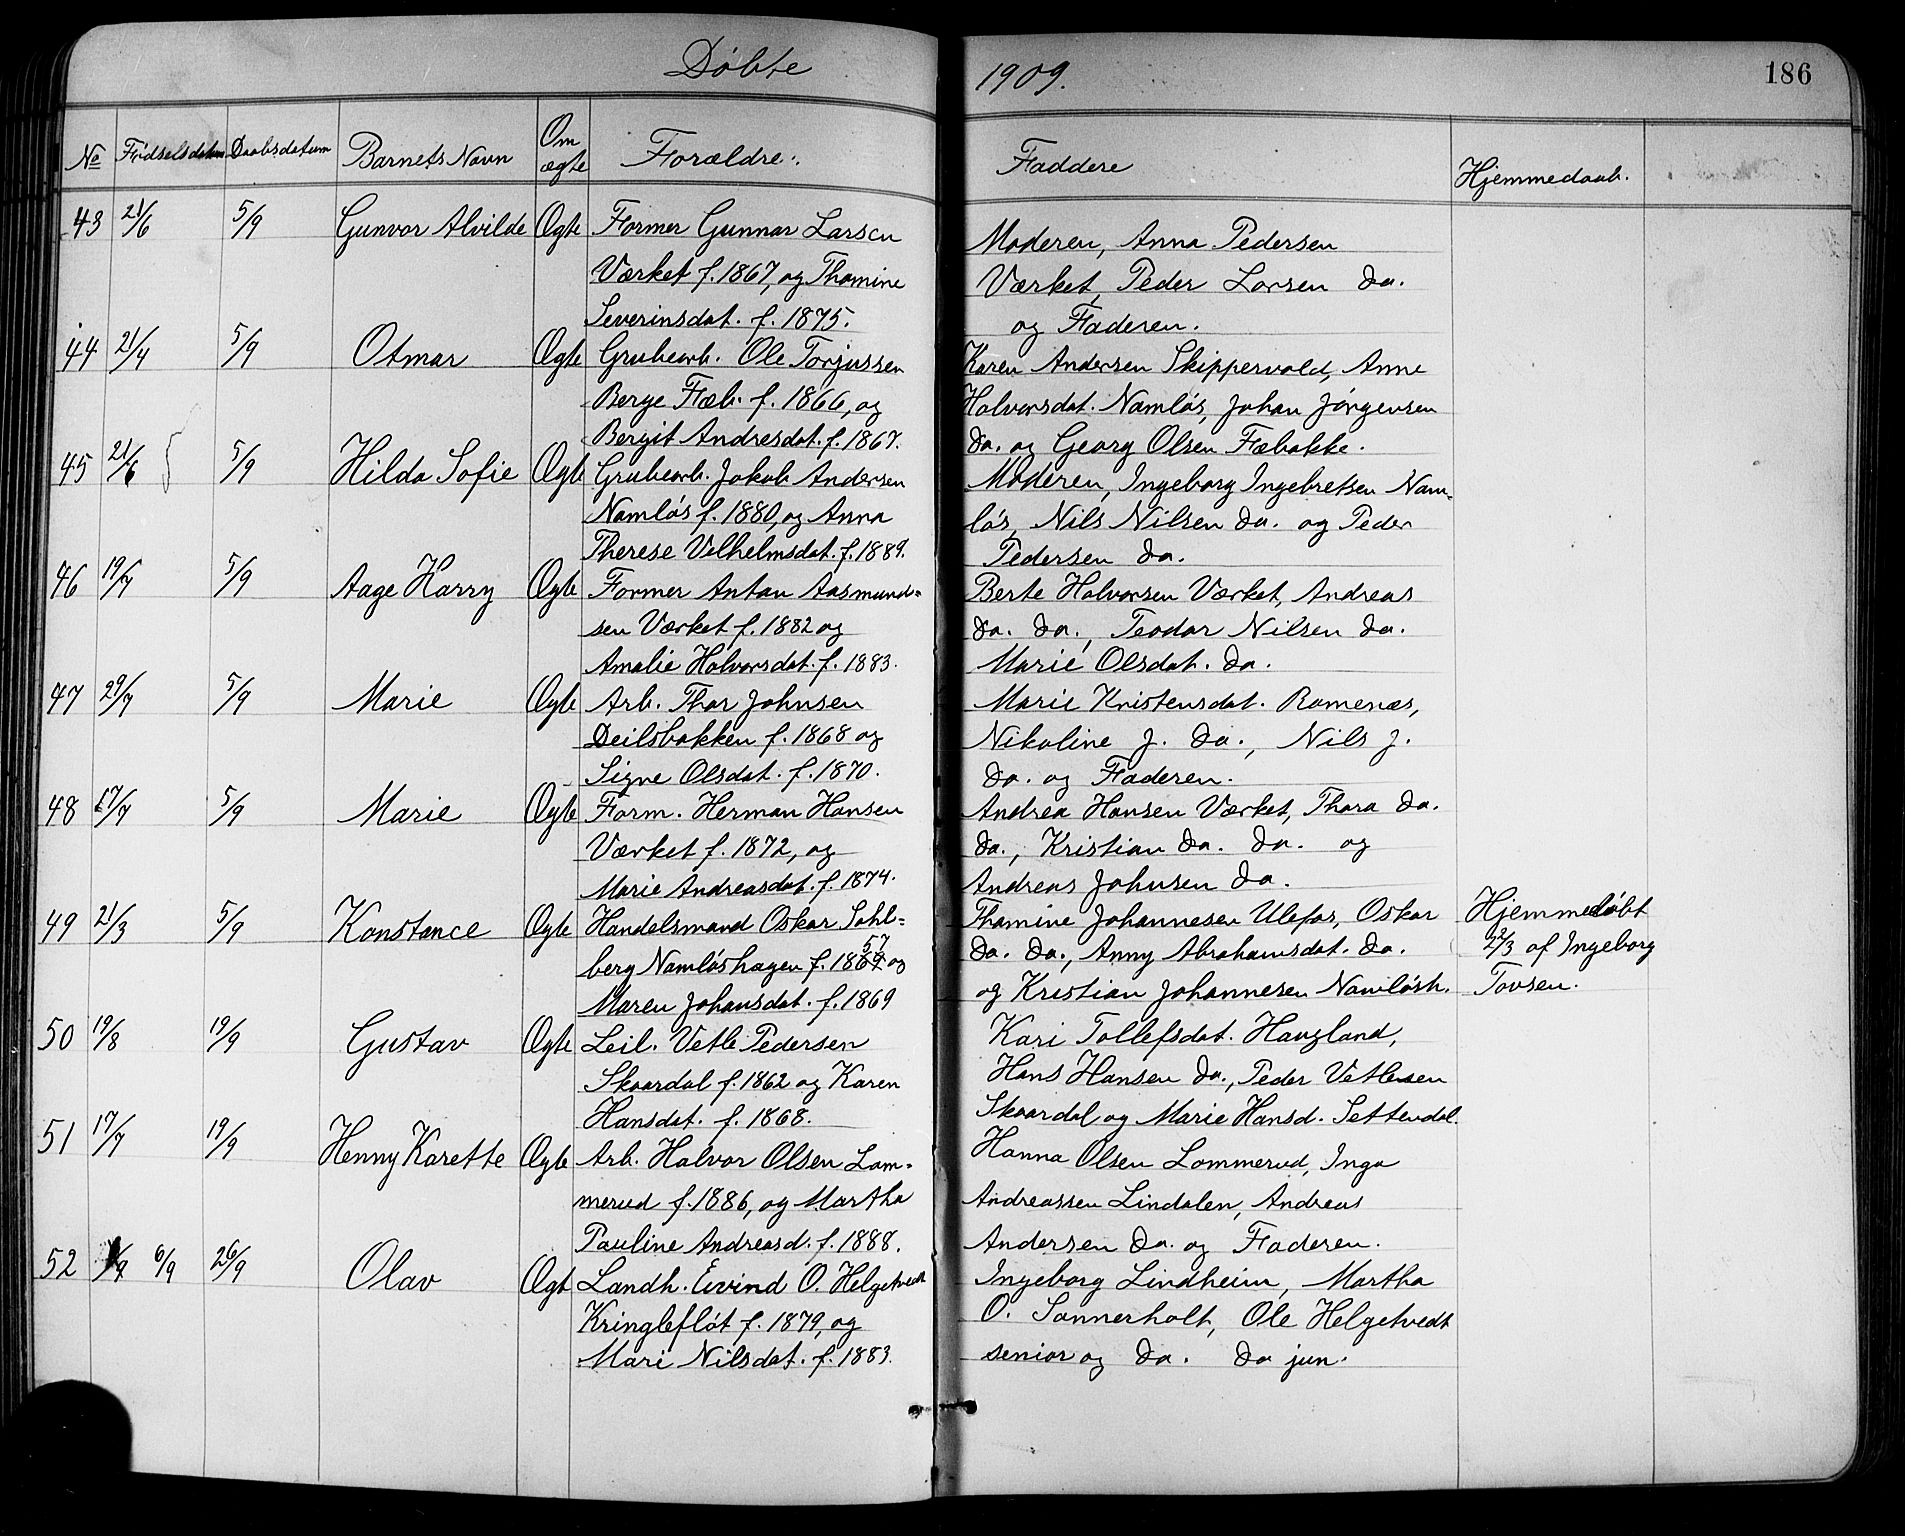 Døbte 1909. 186
No Fødselsdatum Daabsdatum Barnets Navn Om ægte Forældre: Faddere Hjemmedaab.
43 21/6 5/9 Gunvor Alvilde Ægte Former Gunnar Larsen
Værket f. 1867, og Thomine
Severinsdat. f. 1875.
Moderen, Anna Pedersen
Værket, Peder Larsen do.
og Faderen.
44 21/7 5/9 Otmar Ægte Grubearb. Ole Torjussen
Berge Fæb. f. 1866, og
Bergit Andresdat. f. 1867.
Karen Andersen Skippervold, Anne
Halvorsdat. Namløs, Johan Jørgensen
do. og Georg Olsen Fæbakke.
45 21/6 5/9 Hilda Sofie Ægte Grubearb. Jakob Andersen
Namløs f. 1880, og Anna
Therese Vilhelmsdat. f. 1889.
Moderen, Ingeborg Ingebretsen Nam-
løs, Nils Nilsen do. og Peder
Pedersen do.
46 19/7 5/9 Aage Harry Ægte Former Anton Aasmund=
sen Værket f. 1882 og
Amalie Halvorsdat. f. 1883.
Berte Halvorsen Værket, Andreas
do. do., Teodor Nilsen do.
Marie Olsdat. do.
47 29/7 5/9 Marie Ægte Arb. Thor Johnsen
Deilsbakken f. 1868 og
Signe Olsdat. f. 1870.
Marie Kristensdat. Romenæs,
Nikoline J. do., Nils J.
do. og Faderen.
48 17/7 5/9 Marie Ægte Form. Herman Hansen
Værket f. 1872, og
Marie Andreasdat. f. 1874.
Andrea Hansen Værket, Thora do.
do., Kristian do. do. og
Andreas Johnsen do.
49 21/3 5/9 Konstance Ægte Handelsmand Oskar Sahl=
berg Namløshagen f. 1857 og
Maren Johansdat. f. 1869
Thomine Johannesen Ulefos, Oskar
do. do., Anny Abrahamsdat. do.
og Kristian Johannesen Namløsh.
Hjemmedøbt
22/3 af Ingeborg
Tovsen.
50 19/8 19/9 Gustav Ægte Leil. Vetle Pedersen
Skaardal f. 1862 og Karen
Hansdat. f. 1868.
Kari Tollefsdat. Haugland,
Hans Hansen do., Peder Vetlesen
Skaardal og Marie Hansd. Settendal.
51 17/7 19/9 Henny Karette Ægte Arb. Halvor Olsen Lom=
merud f. 1886, og Martha
Pauline Andreasd. f. 1888.
Hanna Olsen Lommerud, Inga
Andreassen Lindalen, Andreas
Andersen do. og Faderen.
52 6/9 26/9 Olav Ægt Landh. Eivind O. Helgetvedt
Kringlefløt f. 1879, og
Mari Nilsdat. f. 1883.
Ingeborg Lindheim, Martha
O. Sannerholt, Ole Helgetvedt
senior og do. do jun.